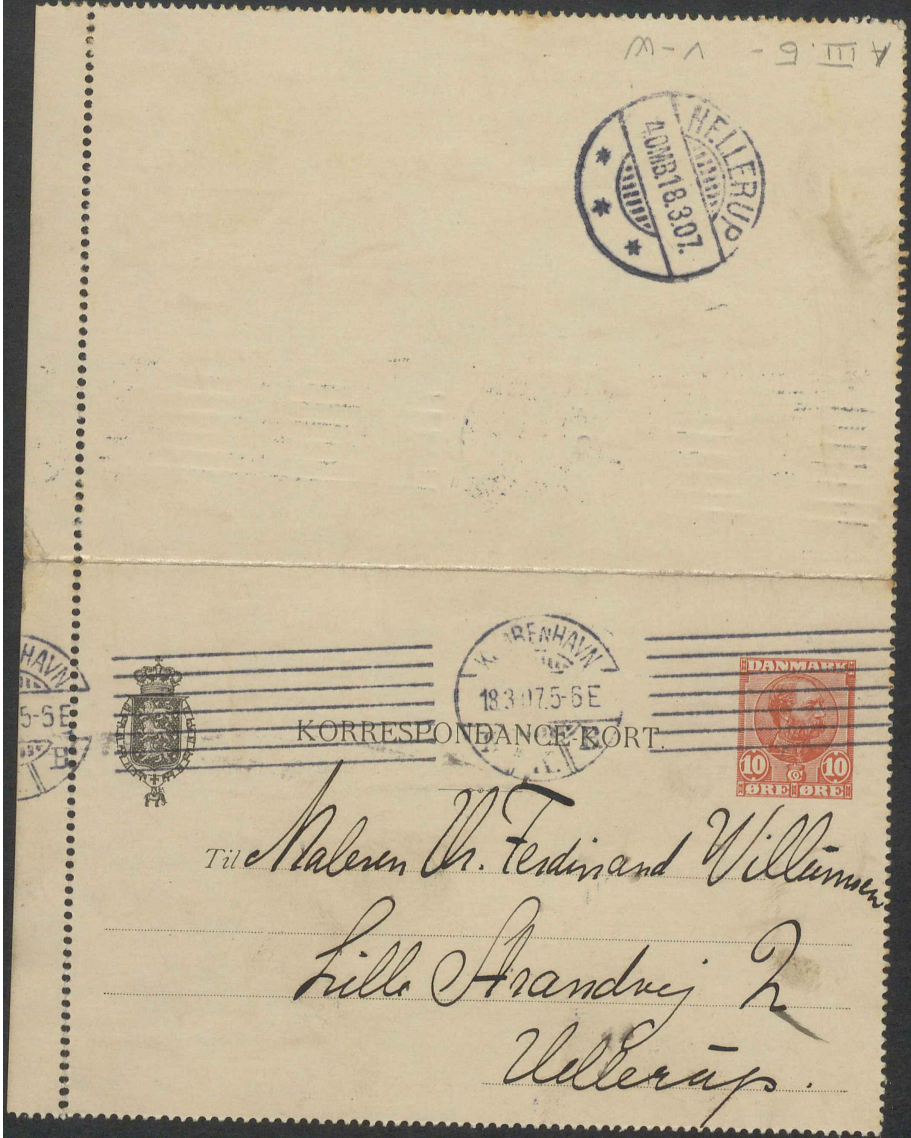 A III. 5 - V-W
HELLERUP
4.OMB.18.3.07.
KJØBENHAVN
18.3.07.5-6 E
B.
HAVN
5-6 E
B.
DANMARK
10 10
ØRE ØRE
KORRESPONDANCE-KORT.
Til Maleren Hr. Ferdinand Willumsen
Lille Strandvej 2
Hellerup.